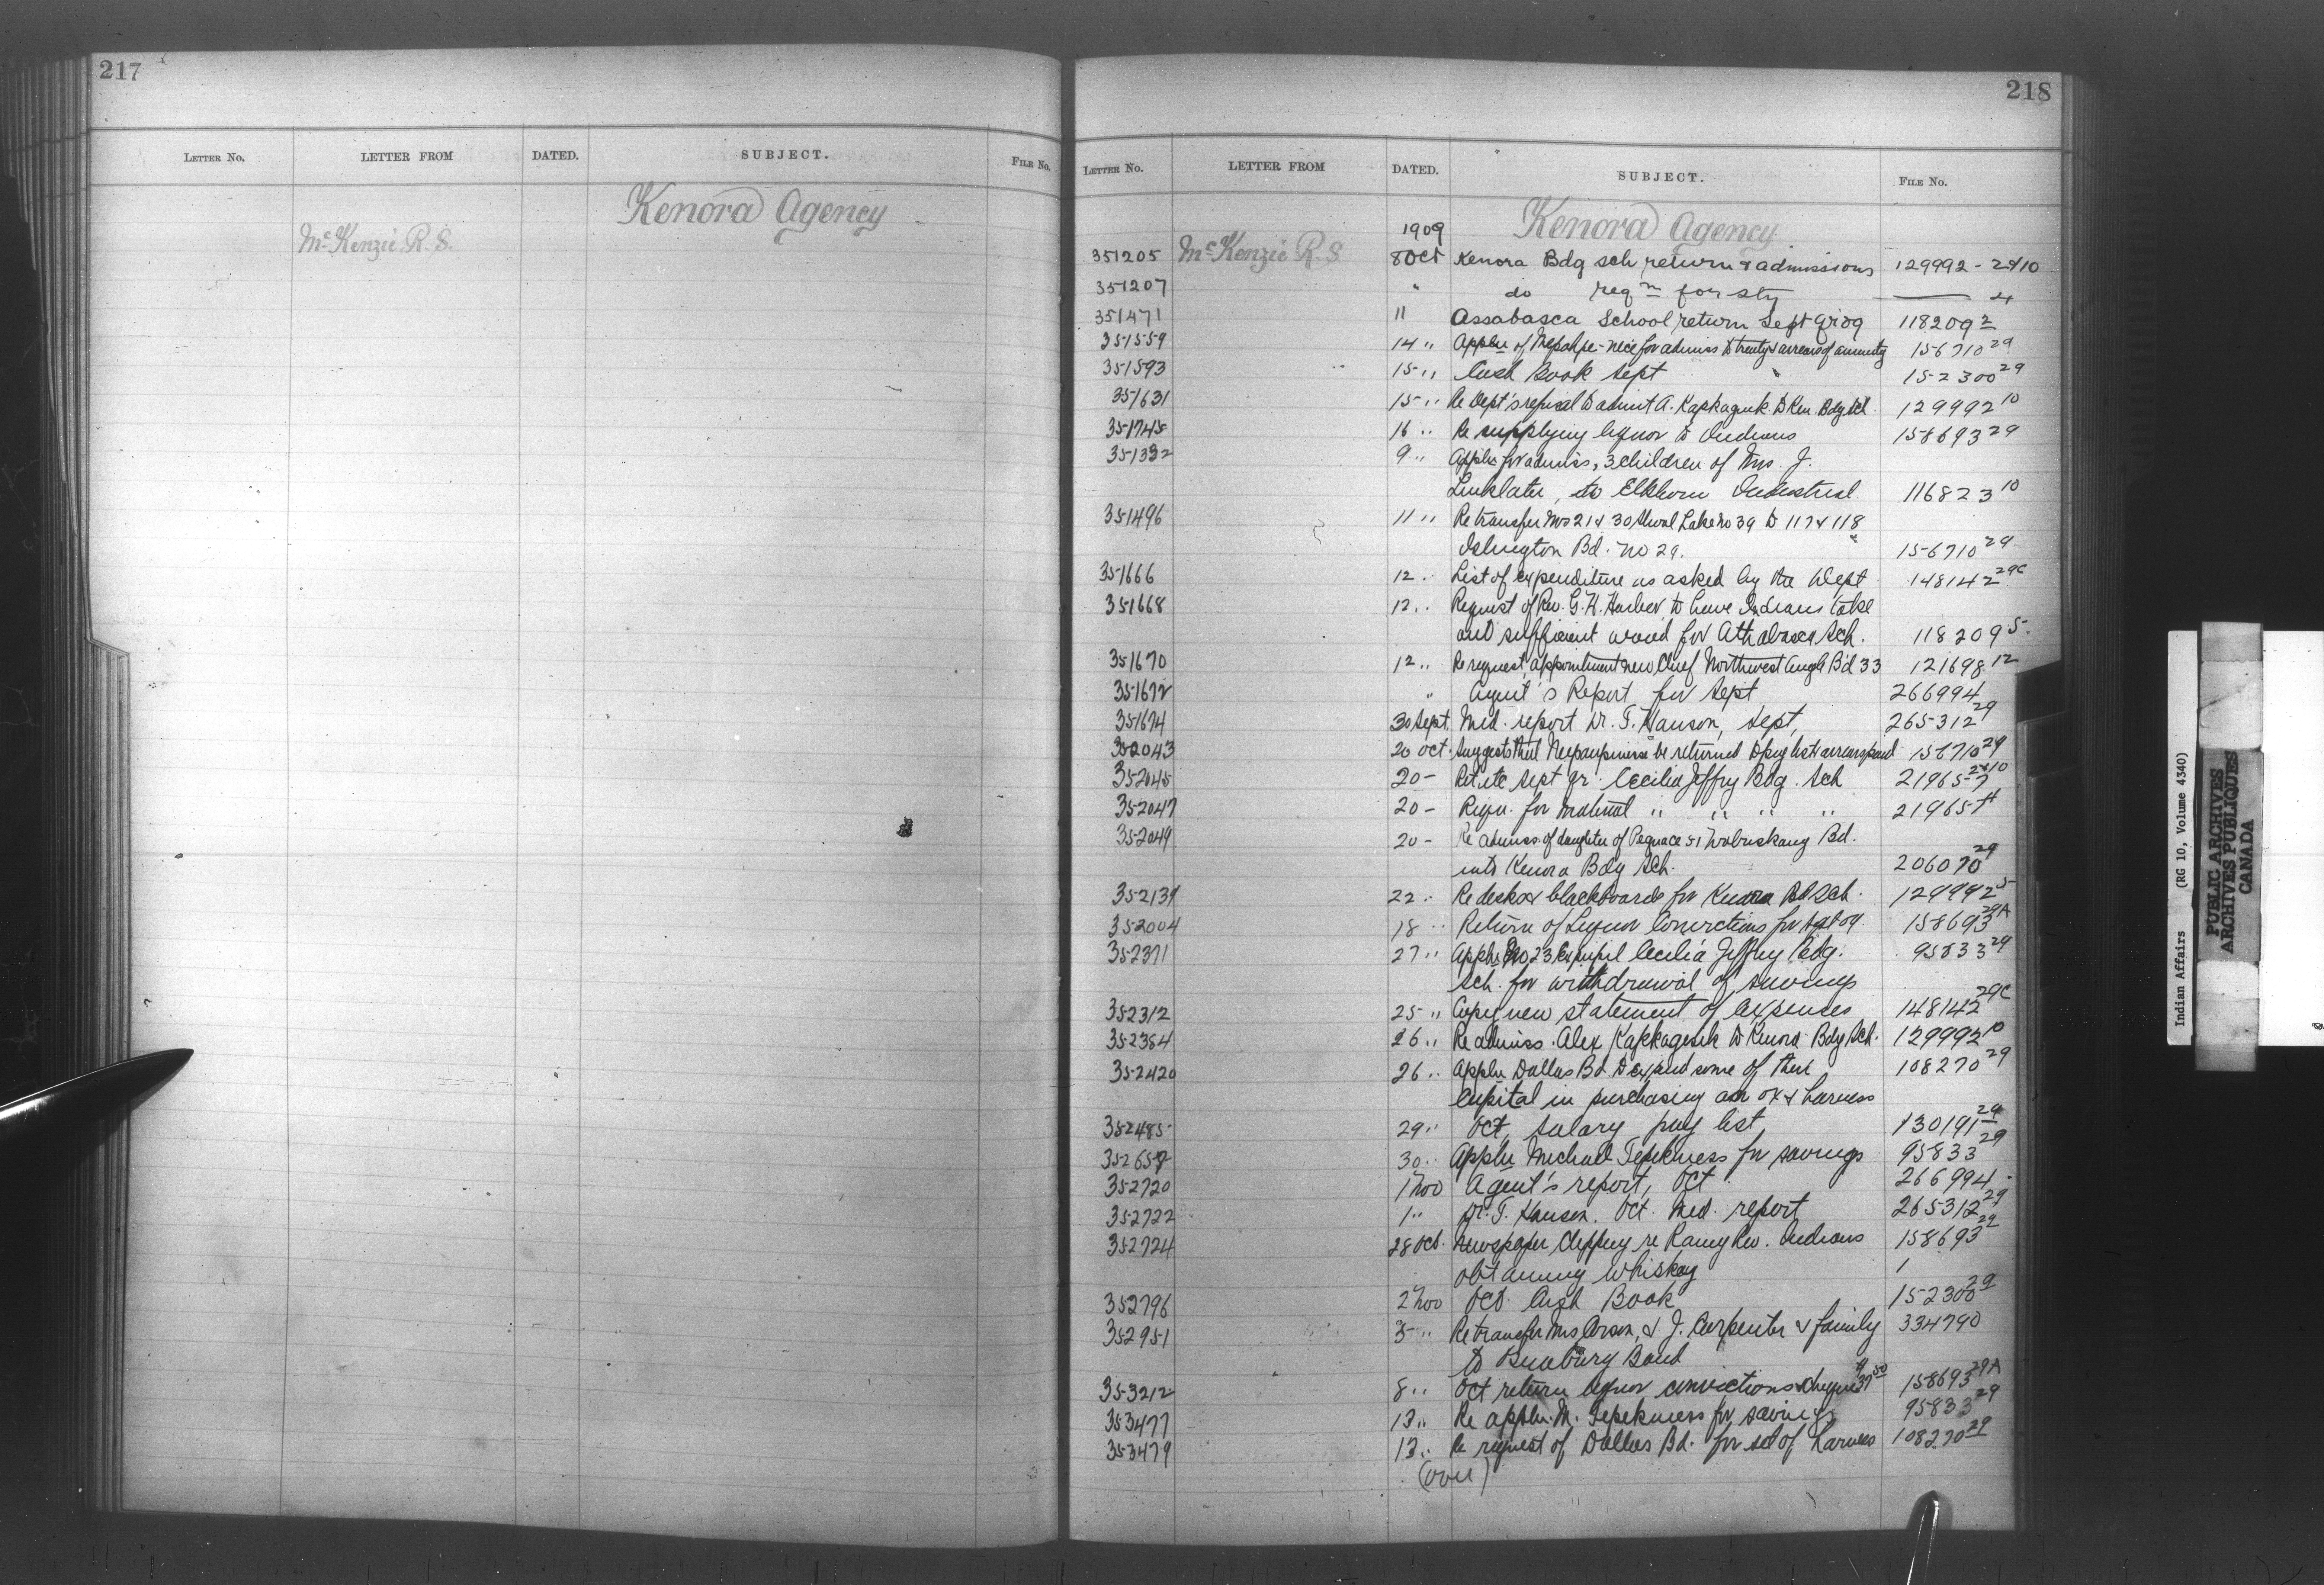 217
LETTER NO. LETTER FROM DATED. SUBJECT. FILE No.
Kenora Agency
McKenzie R. S.
218
LETTER NO. LETTER FROM DATED. SUBJECT. FILE No.
Kenora Agency
1909
351205 McKenzie R. S 8 Oct Kenora Bdg sch return & admissions 129992-2&10
351207 " do reqn for sty — 4
351471 11 Assabasca School return Sept qr 09 118209 2
351559 14 " Appln of for admiss to treaty & arrears of annuity 156710 29
351593 15 " Cash Book Sept 152300 29
351631 15 " Re Dept's refusal to admit A. Kapkagesik to Ken. Bdg Sch 129992 10
351745 16 " Re supplying liquor to Indians 158693 29
351332 9 " Appln for admiss, 3 children of Mrs. J.
Linklater, to Elkhorn Industrial 116823 10
351496 11 " Re transfer Nos 21 & 30 Shoal Lake No 39 to 117 & 118
Islington Bd. No 29. 156710 29
351666 12 " List of expenditure as asked by the Dept 148142 29C
351668 12 " Request of Rev. G. H. to have Indians take
out sufficient wood for Athabasca Sch. 118209 5
351670 12 " Re request, appointment new Chief Northwest Angle Bd 33 121698 12
351672 " Agent's Report for Sept 266994
351674 30 Sept. Med. report Dr. T. Hanson, Sept, 265312 29
352043 20 Oct. Suggests that be returned to pay list & arrears paid 156710 29
352045 20 - Ret. etc Sept qr. Cecilia Jeffry Bdg. Sch 219657 2&10
352047 20 - Reqn. for material " " " " 21965 4
352049 20 - Re admiss. of daughter of 51 Wabuskang Bd.
into Kenora Bdg Sch. 206070 29
352139 22 " Re desks & blackboards for Kenora Bd Sch. 129992 5
352004 18 " Return of Liquor Convictions for Sept 09 158693 29A
352371 27 " Appln No 23 Ex pupil Cecilia Jeffrey Bdg. 95833 29
Sch. for withdrawal of savings
352312 25 " Copy new statement of expenses 148142 29C
352384 26 " Re admiss. Alex Kapkagesik to Kenora Bdg Sch. 129992 10
352420 26 " Appln Dallas Bd to expend some of their 108270 29
Capital in purchasing an ox & harness
352485 29 " Oct, salary pay list, 130191 29
352657 30 " Appln Michael Tepekness for savings 95833 29
352720 1 Nov Agent's report, Oct 266994
352722 1 " Dr. T. Hanson. Oct. Med. report 265312 29
352724 28 Oct. Newspaper Clipping re Rainy Riv. Indians 158693 29
obtaining whiskey 1
352796 2 Nov Oct. Cash Book 152300 29
352951 5 " Re transfer Mrs & J. Carpenter & family 334790
to Band
353212 8 " Oct return liquor convictions & cheque $37 50 158693 29A
353477 13 " Re appln. M. Tepekness for savings 95833 29
353479 13 " Re request of Dallas Bd. for set of harness 108270 29
(over)
Indian Affairs (RG 10, Volume 4340)
PUBLIC ARCHIVES
ARCHIVES PUBLIQUES
CANADA